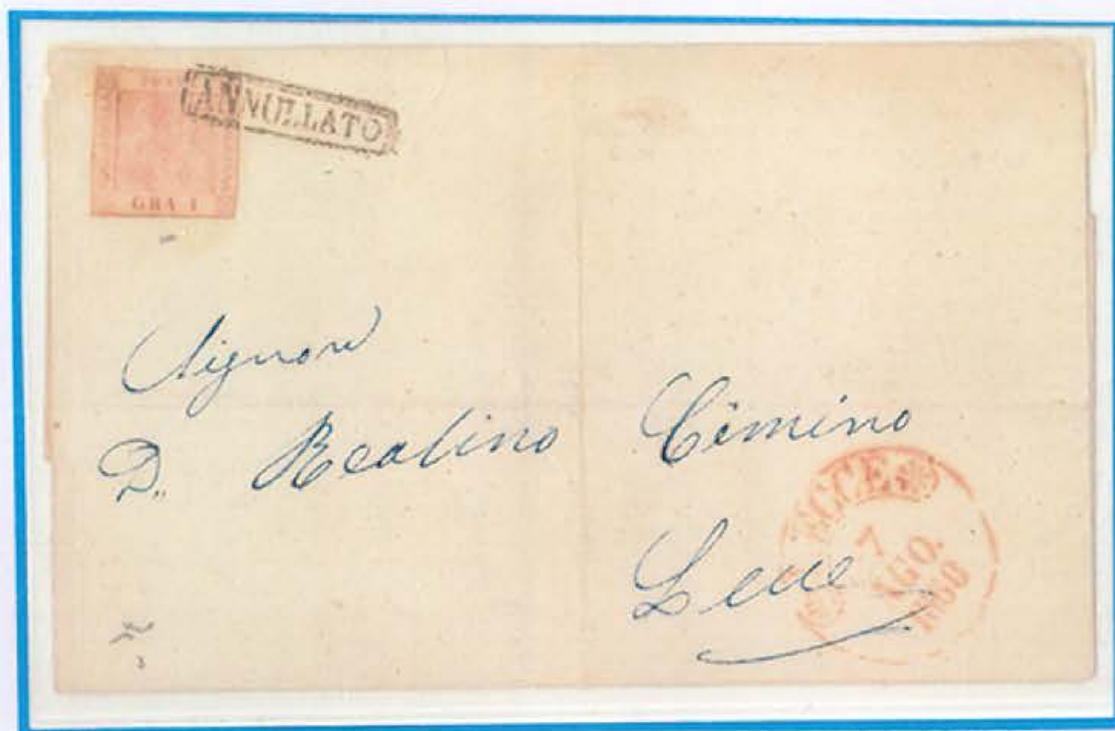 ANNULLATO
GRA 1
Signore
D. Realino Cimino
Lecce
LECCE
7
AGO.
1860